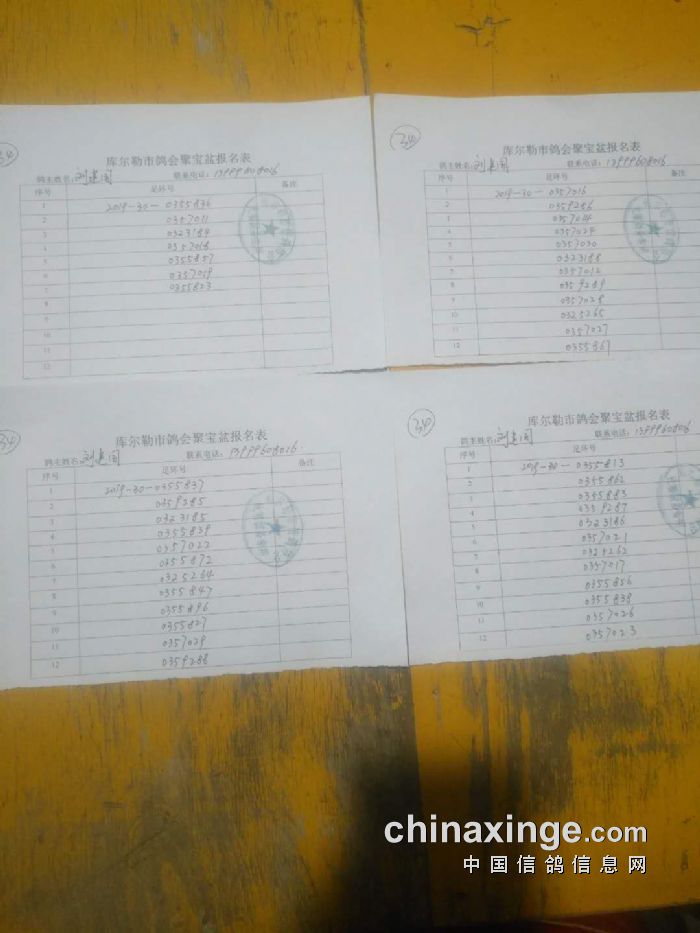 34
库尔勒市鸽会聚宝盆报名表
鸽主姓名:刘建国 联系电话:13999608016
序号 足环号 备注
1 2019-30-0355836
2 0357011
3 0323184
4 0357018
5 0355857
6 0357019
7 0355823
8
9
10
11
12
34
库尔勒市鸽会聚宝盆报名表
鸽主姓名:刘建国 联系电话:13999608016
序号 足环号 备注
1 2019-30-0357016
2 0359286
3 0357014
4 0357024
5 0357030
6 0323188
7 0357012
8 0359289
9 0357028
10 0325265
11 0357027
12 0355867
34
库尔勒市鸽会聚宝盆报名表
鸽主姓名:刘建国 联系电话:13999608016
序号 足环号 备注
1 2019-30-0355837
2 0359285
3 0323185
4 0355839
5 0357022
6 0355872
7 0325264
8 0355847
9 0355896
10 0355827
11 0357029
12 0359288
34
库尔勒市鸽会聚宝盆报名表
鸽主姓名:刘建国 联系电话:13999608016
序号 足环号 备注
1 2019-30-0355813
2 0355862
3 0355883
4 0359287
5 0323186
6 0357021
7 0325262
8 0357017
9 0355856
10 0355838
11 0357026
12 0357023
chinaxinge.com
中国信鸽信息网